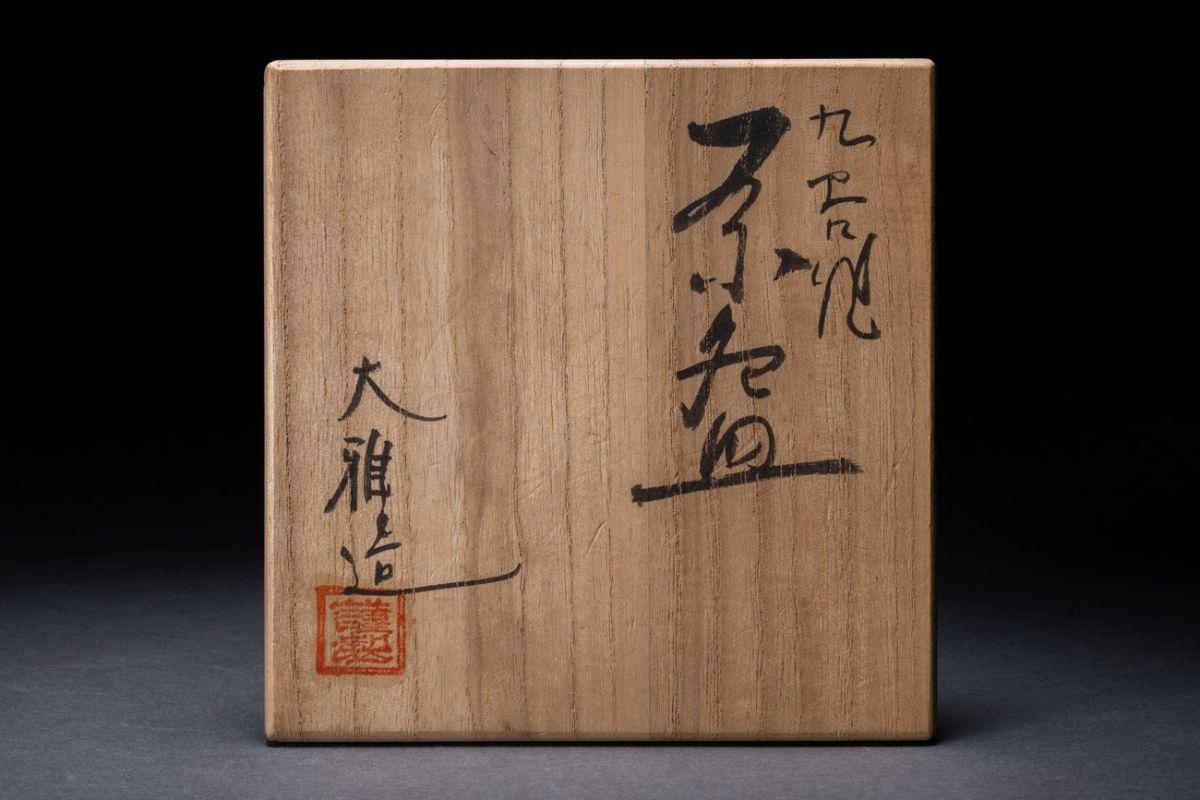 九谷焼
茶盌
大雅造
謹製